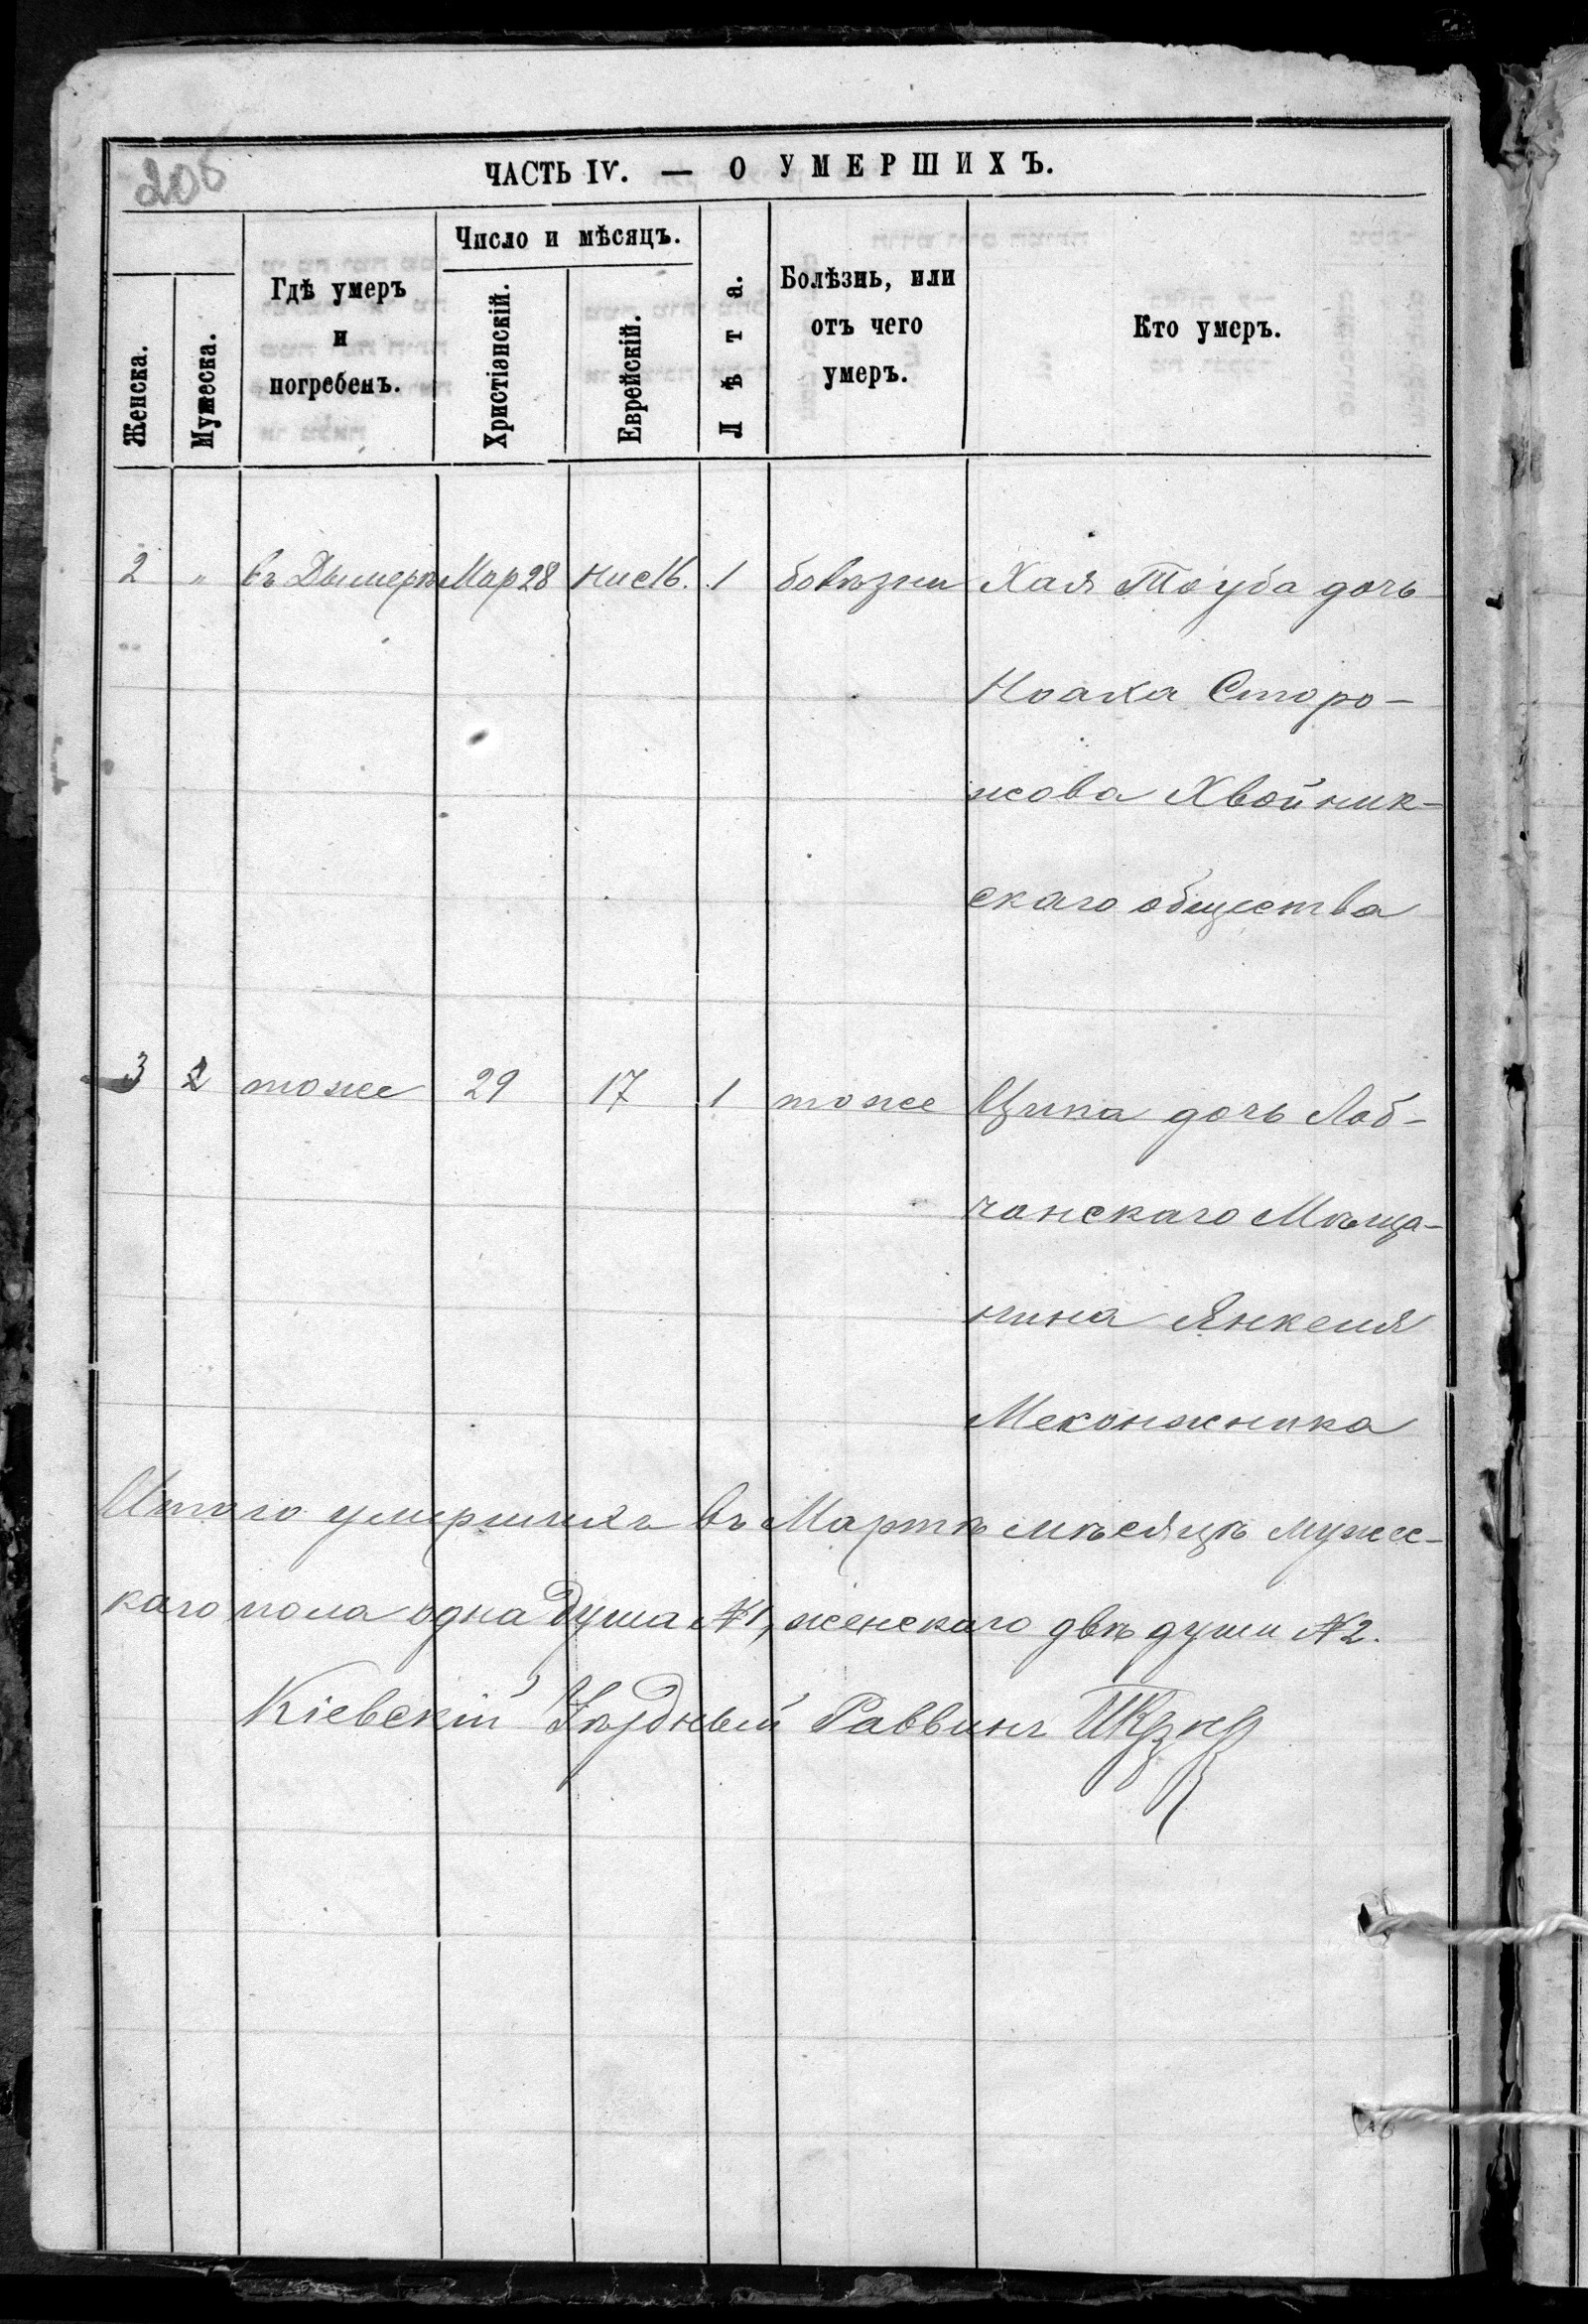 206
ЧАСТЬ IV. — О УМЕРШИХЪ.
Женска.
Мужеска.
Гдѣ умеръ
и
погребенъ.
Число и мѣсяцъ.
Христіанскій.
Еврейскій.
Лѣта.
Болѣзнь, или
отъ чего
умеръ.
Кто умеръ.
2 " въ Дымерѣ Мар 28 Нис 16. 1 болѣзни Хая Тоуба дочь
Ноаха Сторо-
жова Хвойник-
скаго общества
3 2 тоже 29 17 1 тоже Ципа дочь Лоб-
чанскаго Мѣща-
нина Янкеля
Меконжника
Итого умершихъ въ Мартѣ мѣсяцѣ мужес-
каго пола одна душа №1, женскаго двѣ души №2.
Кіевскій Уѣздный Раввинъ